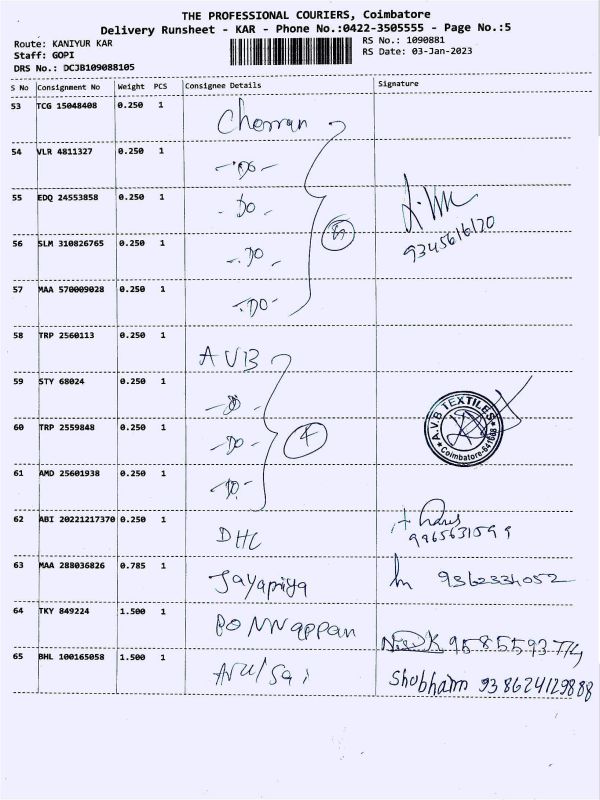 THE PROFESSIONAL COURIERS, Coimbatore
Delivery Runsheet - KAR - Phone No.:0422-3505555 - Page No.:5
Route: KANIYUR KAR RS No.: 1090881
Staff: GOPI RS Date: 03-Jan-2023
DRS No.: DCJB109088105
S No Consignment No Weight PCS Consignee Details Signature
53 TCG 15048408 0.250 1 Cherran
54 VLR 4811327 0.250 1 -DO-
55 EDQ 24553858 0.250 1 -DO-
9345616120
56 SLM 310826765 0.250 1 -DO-
57 MAA 570009028 0.250 1 -DO-
58 TRP 2560113 0.250 1 AVB
59 STY 68024 0.250 1 -DO-
A.V.B TEXTILES
Coimbatore-641
60 TRP 2559848 0.250 1 -DO- 4
61 AMD 25601938 0.250 1 -DO-
62 ABI 20221217370 0.250 1 DHL
9965631599
63 MAA 288036826 0.785 1 Jayapriya 9362334052
64 TKY 849224 1.500 1 PONNappan
65 BHL 100165058 1.500 1 Arul Sai Shubham 938624129888